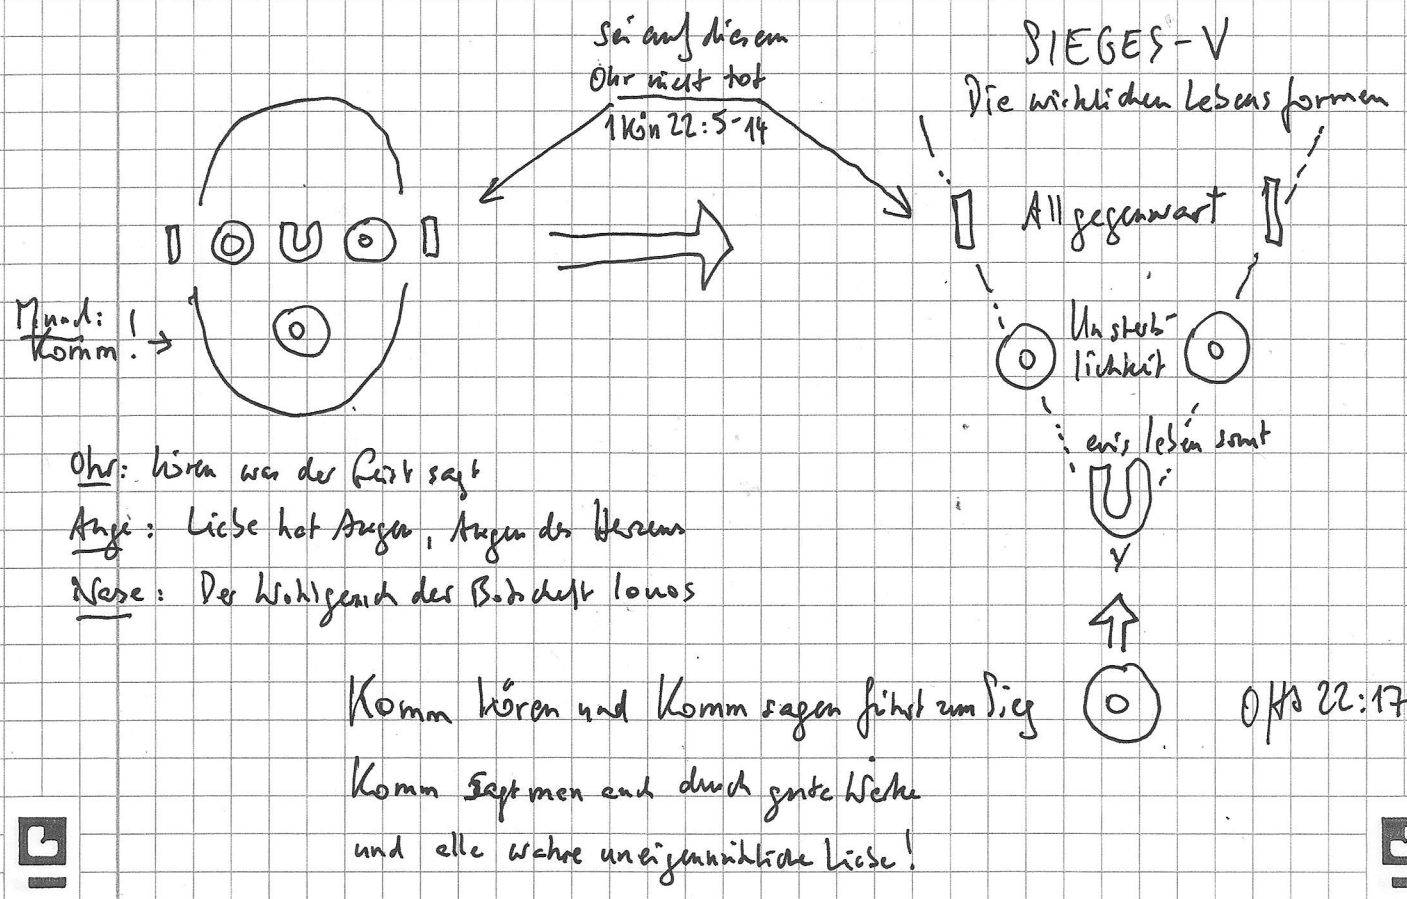 Sei auf diesem
Ohr nicht tot
1 Kön 22:5-14
SIEGES-V
Die wirklichen Lebensformen
Allgegenwart
Mund:
Komm!
Unsterb-
lichkeit
ewig leben somit
Ohr: hören was der Geist sagt
Auge: Liebe hat Augen, Augen des Herzens
Nase: Der Wohlgeruch der Botschaft
Komm hören und Komm sagen führt zum Sieg
22:17
Komm sagt man auch durch gute Werke
und alle wahre uneigennützliche Liebe!